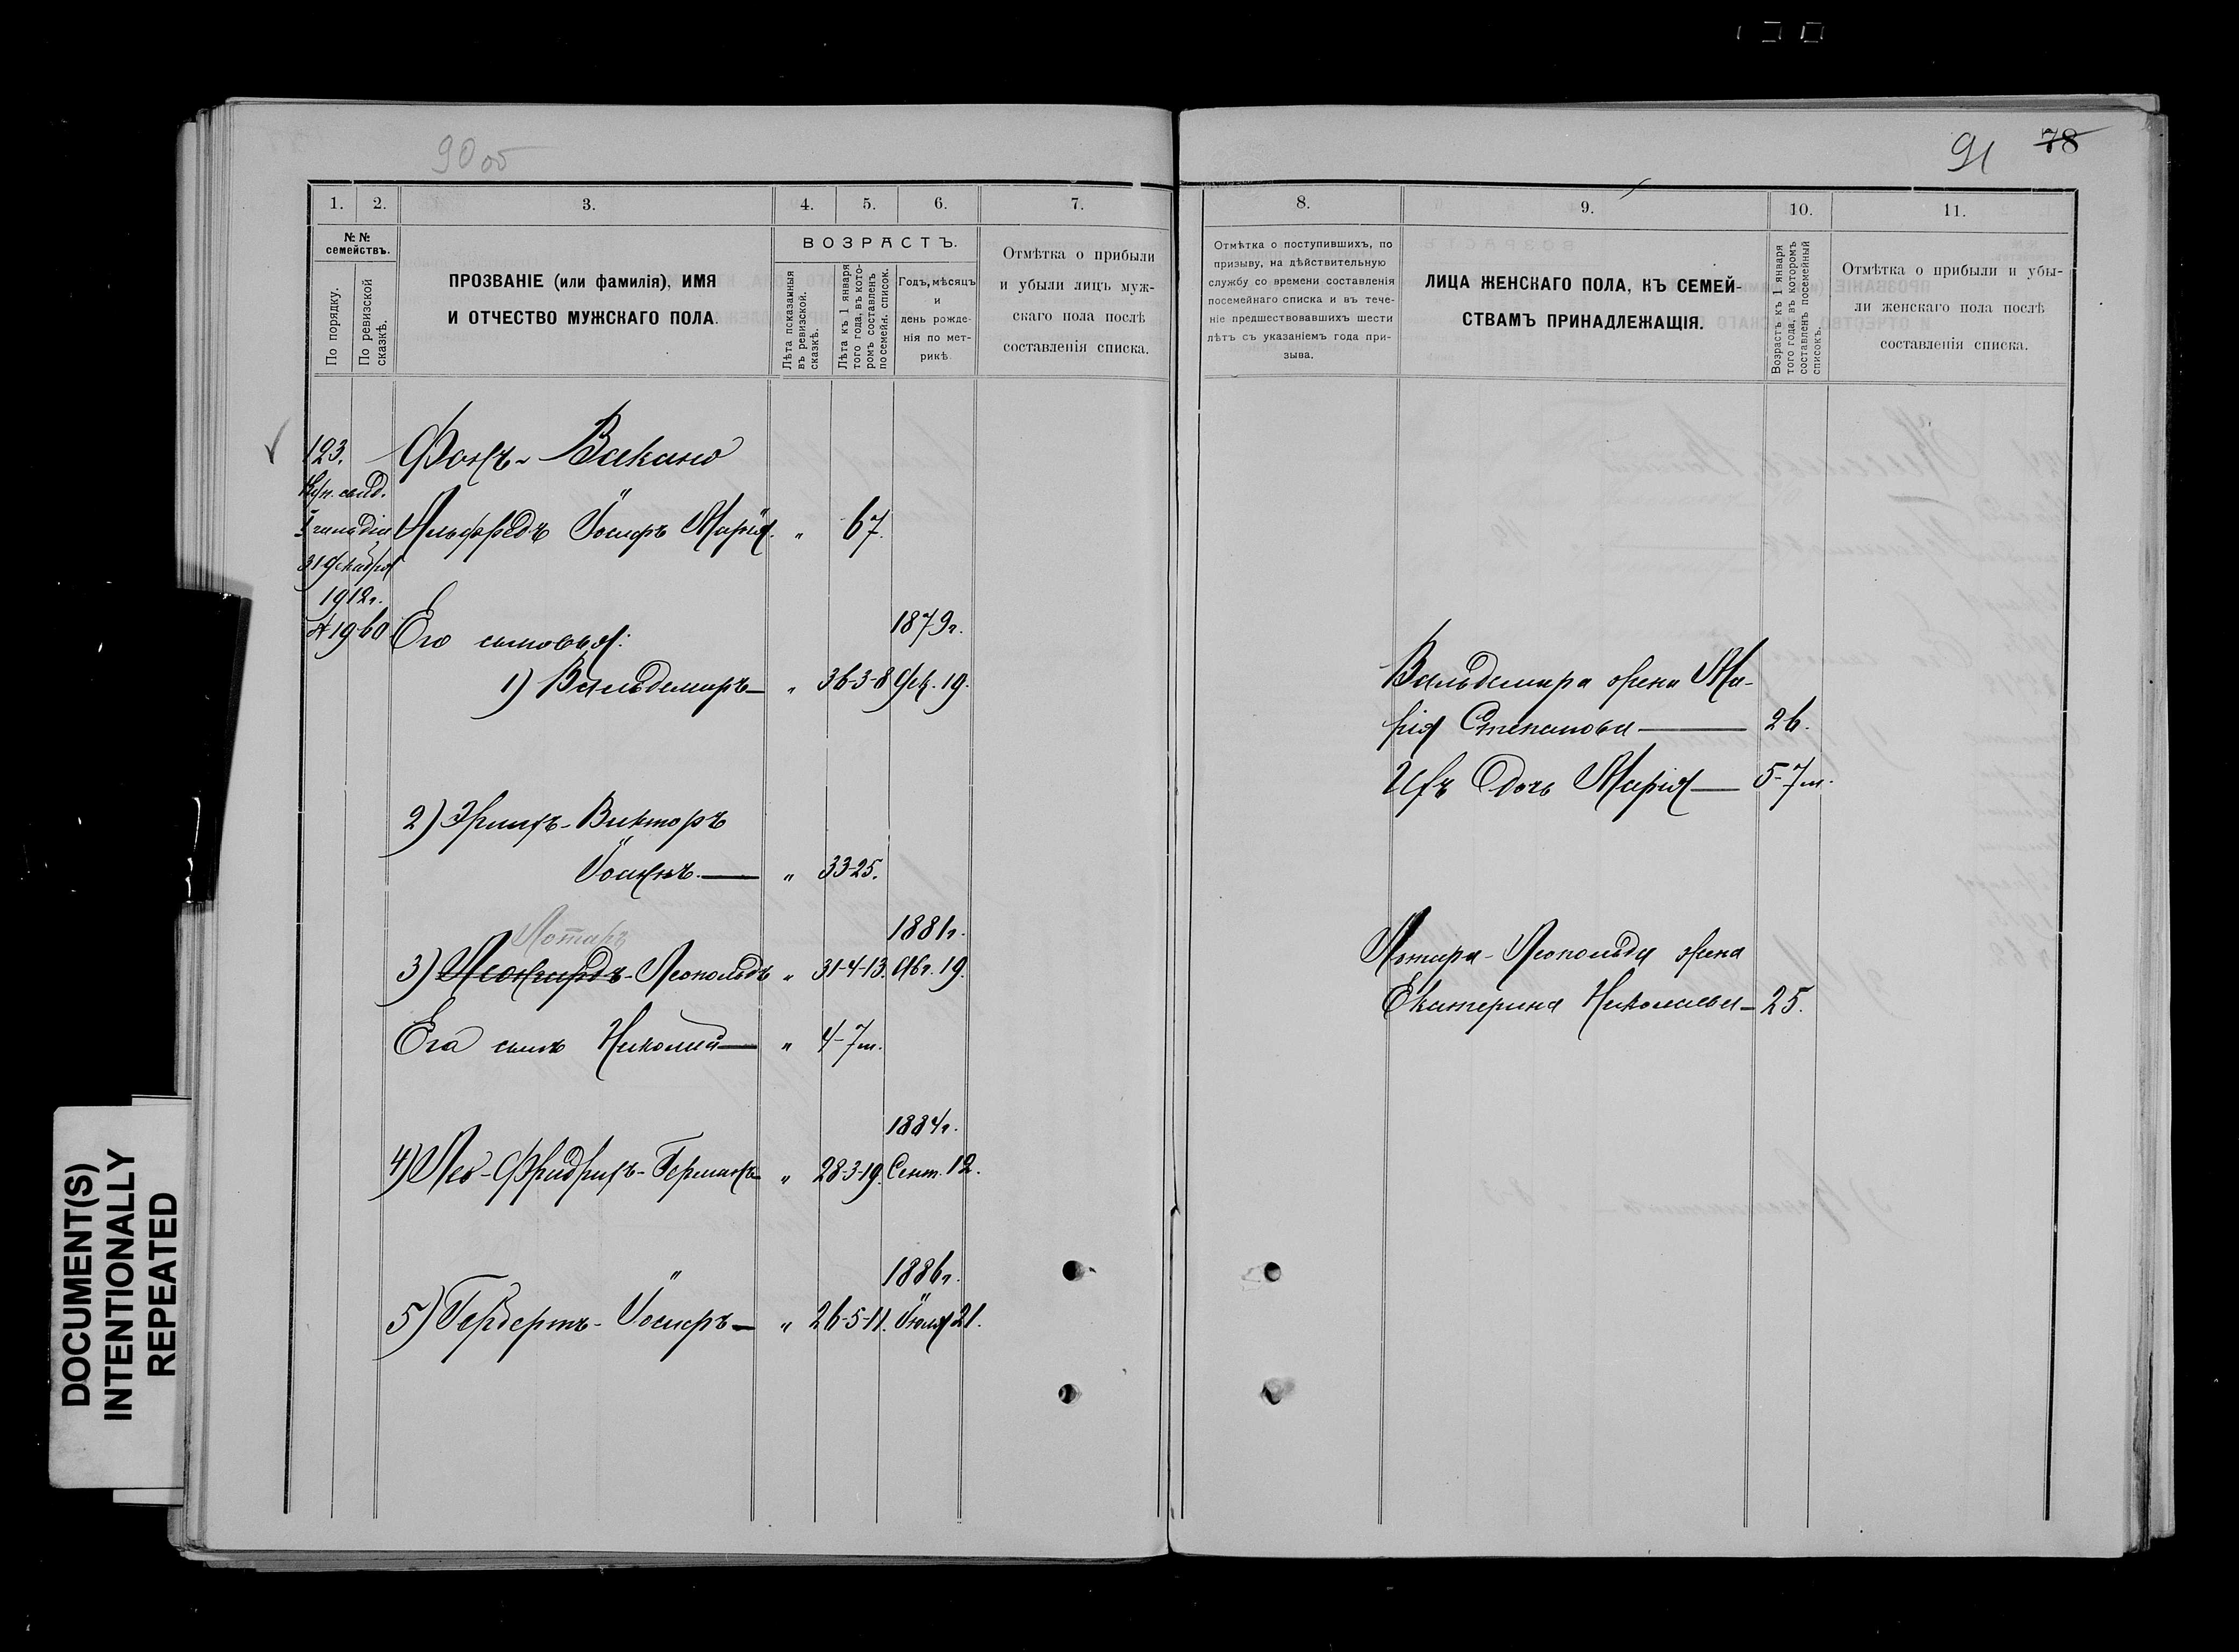 90 об
91 78
1. 2. 3. 4. 5. 6. 7.
№ №
семействъ.
По порядку.
По ревизской
сказкѣ.
ПРОЗВАНІЕ (или фамилія), ИМЯ
И ОТЧЕСТВО МУЖСКАГО ПОЛА.
ВОЗРАСТЪ.
Лѣта показанныя
въ ревизской.
сказкѣ.
Лѣта къ 1 января
того года, въ кото-
ромъ составленъ
посемейн. список.
Годъ, мѣсяцъ
и
день рожде-
нія по мет-
рикѣ.
Отмѣтка о прибыли
и убыли лицъ муж-
скаго пола послѣ
составленія списка.
8. 9. 10. 11.
Отмѣтка о поступившихъ, по
призыву, на дѣйствительную
службу со времени составленія
посемейнаго списка и въ тече-
ніе предшествовавшихъ шести
лѣтъ съ указаніемъ года при-
зыва.
ЛИЦА ЖЕНСКАГО ПОЛА, КЪ СЕМЕЙ-
СТВАМЪ ПРИНАДЛЕЖАЩІЯ.
Возрастъ къ 1 января
того года, въ которомъ
составленъ посемейный
списокъ.
Отмѣтка о прибыли и убы-
ли женскаго пола послѣ
составленія списка.
123. Фонъ-Вакано
Куп. свид.
I гильдіи Альфредъ Іосифъ Марія. " 67.
31 декабря
1912 г.
№ 1960 Его сыновья: 1879 г.
1) Вальдемаръ — " 36-3-8 Дек. 19.
2) Эрихъ-Викторъ
Іоганъ. — " 33-25.
Лотаръ 1881 г.
3) Леонгардъ-Леопольдъ " 31-4-13. Авг. 19.
Его сынъ Николай — " 4-7 м.
1884 г.
4) Лео-Фридрихъ-Германъ — " 28-3-19. Сент. 12.
1886 г.
5) Гербертъ-Іосифъ — " 26-5-11. Іюля 21.
Вальдемара жена Ма-
рія Степанова — 26.
Ихъ дочь Марія — 5-7 м.
Лотара-Леопольда жена
Екатерина Николаева — 25.
DOCUMENT(S)
INTENTIONALLY
REPEATED